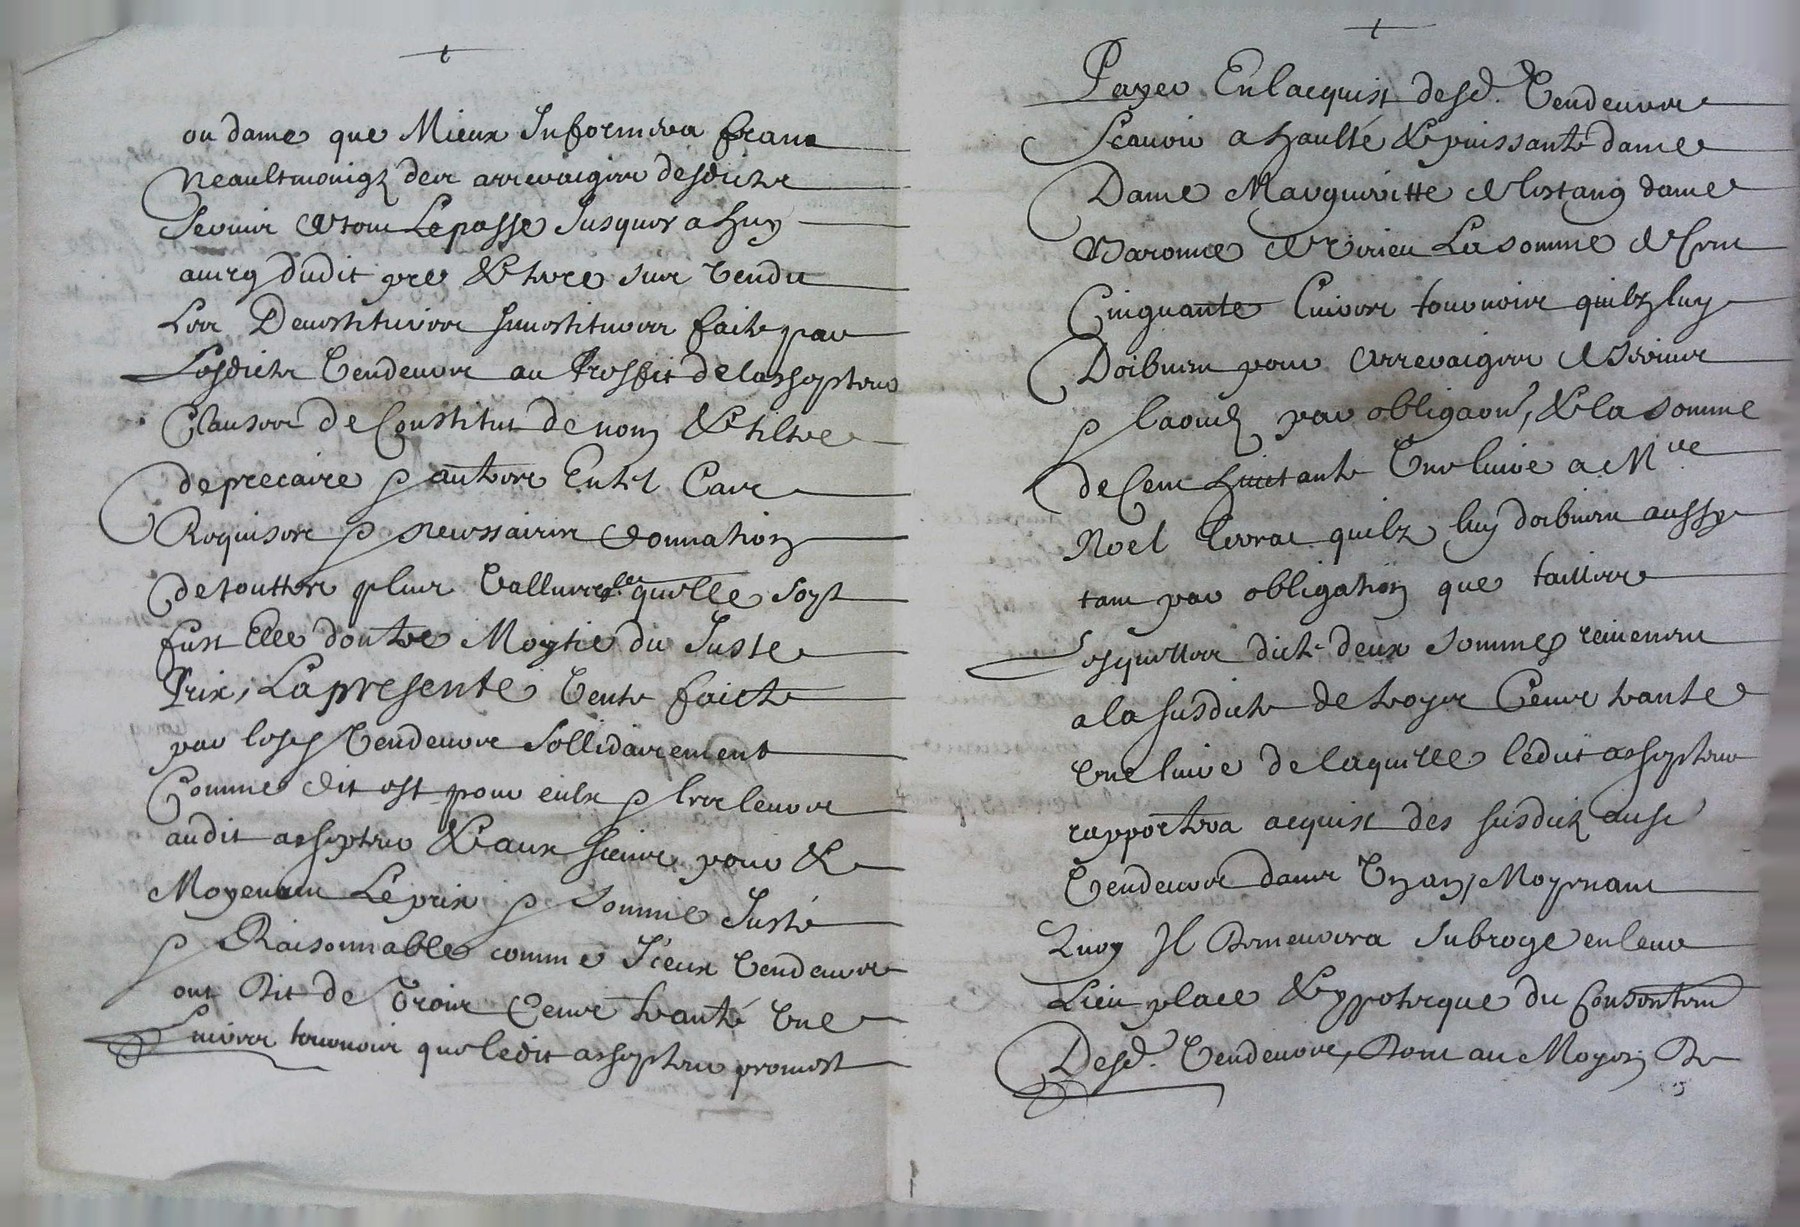 ou dame que Mieux Informera franc
Neaultmoingz des arreraiges desdictes
servis de tout Le passe Jusques a huy
aincy dudit pre & terre sus vendu
Les Devestitures Invostitures faicte par
Lesdictz Vendeurs au Proffit de lachepteur
Clauses de Constitut de nom & tiltre
de precaire & autres En tel Cas
Requises & necessaires donnation
de touttes plus Vallures quelle soyt
fust Elle doultre Moytie du Juste
Prix, La presente Vente faicte
par lesd Vendeurs sollidairement
Comme dit est pour eulx & les leurs
audit achepteur & aux siens pour &
Moyenant Le prix & somme Juste
& Raisonnable comme Iceux Vendeurs
ont dit de Trois Cens trante Une
Livres tournois que ledit achepteur promest
Payer En lacquist desd. Vendeurs
Scavoir a haulte & puissante dame
Dame Margueritte de lestang dame
Baronne de Virieu La somme de Cent
Cinquante Livres tournoise quilz luy
Doibvent pour arreraiges de servis
& par obligaon, & la somme
de Cent huictante Une livre a Mre
Noel quilz luy doibvent aussy
tant par obligation que tailles
Lesquelles dicte deux sommes reviennent
a la susdicte de troys Cens trante
Une livre de laquelle ledit achepteur
rapportera acquist des susdictz ausd
Vendeurs dans Ung an, Moyenant
Quoy Il demeurera subroge en leur
Lieu place & ypoteque du Consentement
Desd. Vendeurs, Dont au Moyen De